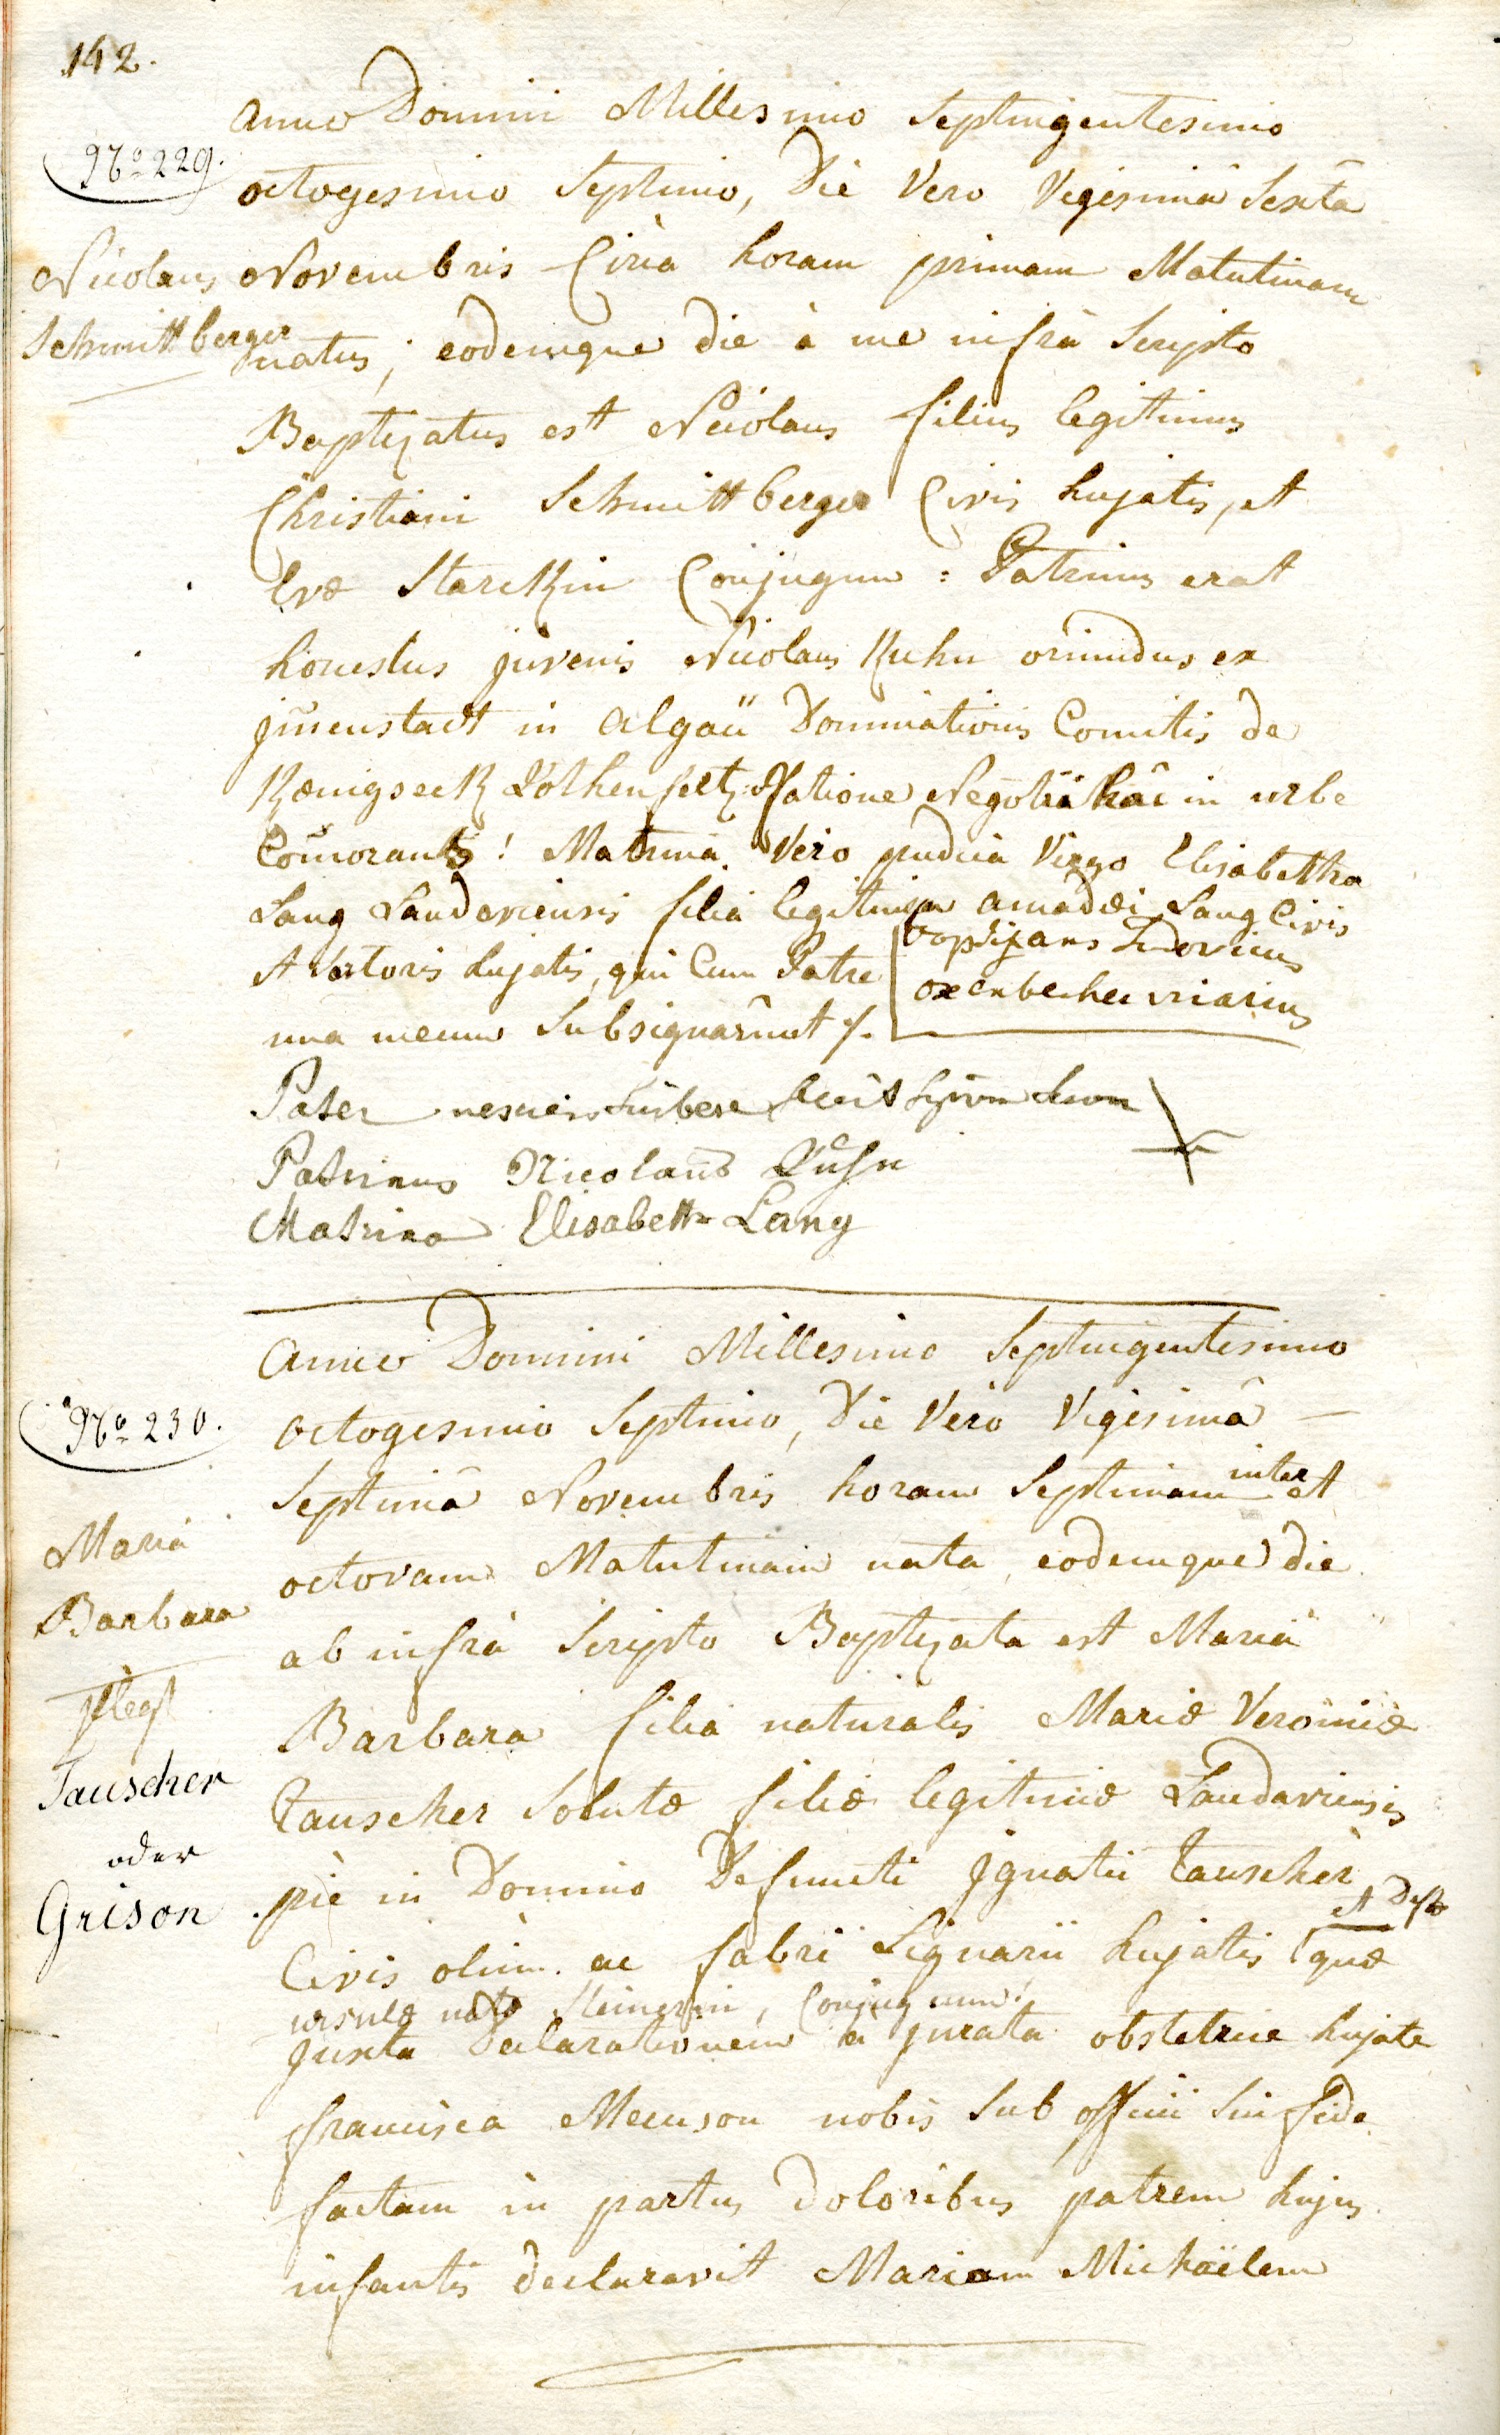 142.
No 229.
Nicolaus
Schmittberger
Anno Domini Millesimo Septingentesimo
octogesimo Septimo, Die Vero Vigesimâ Sextâ
Novembris Circa horam primam Matutinam
natus, eodemque die à me infrà Scripto
Baptizatus est Nicolaus filius legitimus
Christiani Schmittberger Civis hujatis, et
Evæ Starckin Conjugum : Patrinus erat
honestus juvenis Nicolaus Kuhn oriundus ex
jm̄enstadt in Algäu Dominationis Comitis de
Kœnigseck Rothenfeltz Ratione Negotii hâc in urbe
Com̄orantis ! Matrina Vero pudica Virgo Elisabetha
Lang Landaviensis filia legitima Amadæi Lang Civis
et Sartoris hujatis, qui Cum Patre
una mecum Subsignarûnt /.
baptizans Ludovicus
oxenbecher vicarius
Pater nescius scribere fecit signum suum
Patrinus Nicolaus Kuhn
Matrina Elisabetha Lang
No 230.
Maria
Barbara
Tauscher
oder
Grison
Anno Domini Millesimo Septingentesimo
octogesimo Septimo, Die Vero Vigesimâ —
Septimâ Novembris horam Septimam inter et
octovam Matutinam nata, eodemque die
ab infrà Scripto Baptizata est Maria
Barbara filia naturalis Mariæ Veronicæ
Tauscher Solutæ filiæ legitimæ Landaviensis
piè in Domino Defuncti Jgnatii Tauscher
Civis olim ac fabri Lignarii hujatis et
ursulæ natæ Steinerin, Conjugum! quæ
Juxta Declarationem a jurata obstetrice hujate
francisca Meunson nobis Sub officii Sui fide
factam in partus Doloribus patrem hujus
infantis declaravit Mariam Michaëlem